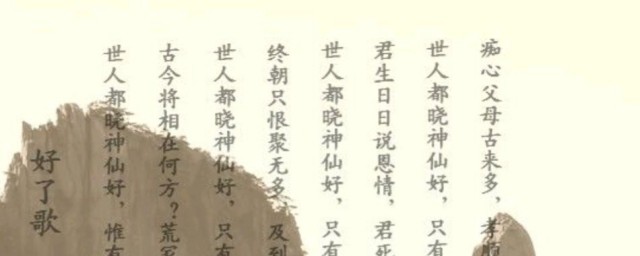 好了歌
世人都晓神仙好，惟有
古今将相在何方？荒冢
世人都晓神仙好，只有
终朝只恨聚无多，及到
世人都晓神仙好，只有
君生日日说恩情，君死
世人都晓神仙好，只有
痴心父母古来多，孝顺